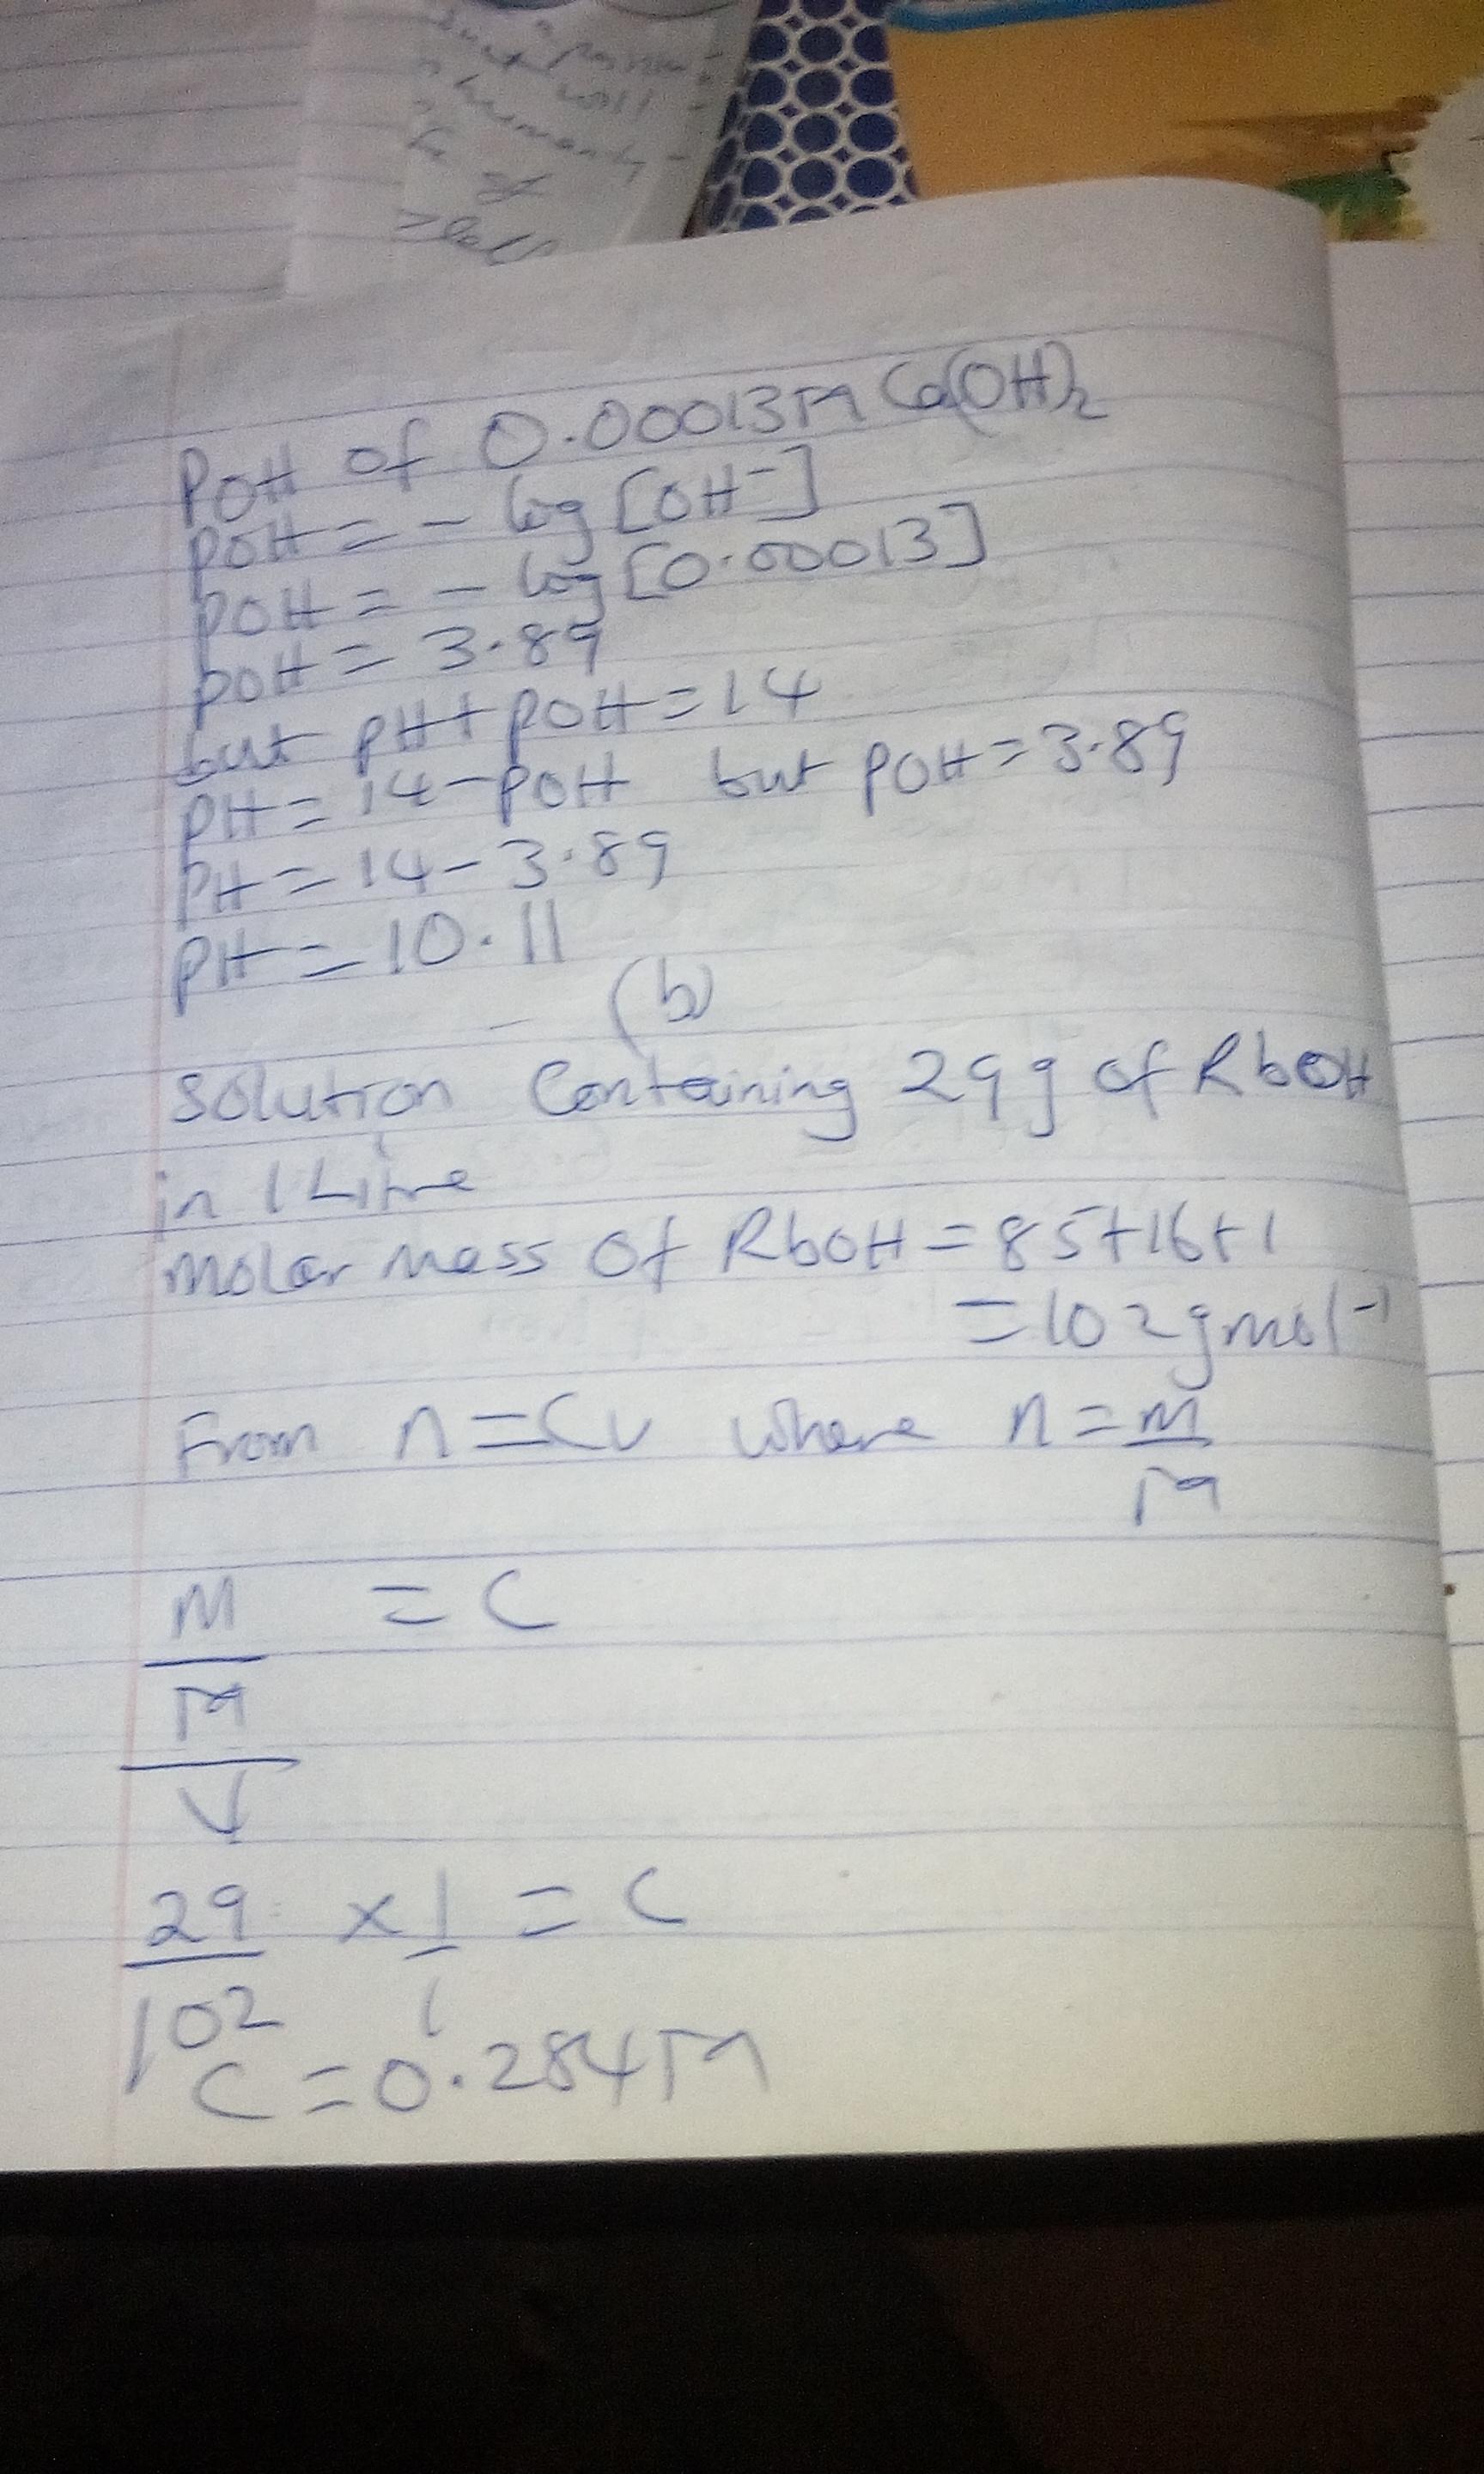 a
will
humanity
of
POH of 0.00013M Ca(OH)₂
POH = - log [OH⁻]
POH = - log [0.00013]
POH = 3.89
but PH + POH = 14
PH = 14 - POH but POH = 3.89
PH = 14 - 3.89
PH = 10.11
(b)
Solution Containing 29g of RbOH
in 1 Litre
Molar mass of RbOH = 85+16+1
= 102gmol⁻¹
From n = CV where n = m
M
m = C
M
V
29 × 1 = C
102 1
C = 0.284M